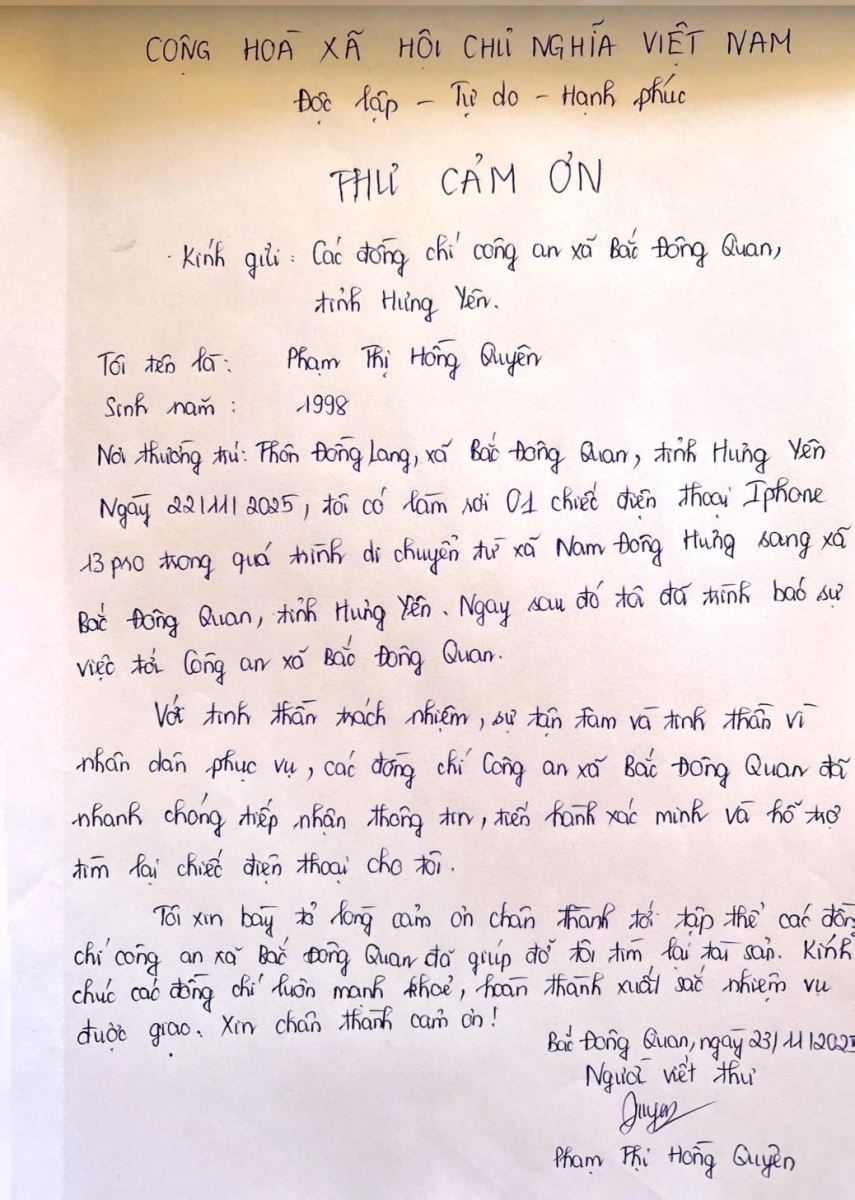 CỘNG HOÀ XÃ HỘI CHỦ NGHĨA VIỆT NAM
Độc lập - Tự do - Hạnh phúc
THƯ CẢM ƠN
Kính gửi: Các đồng chí công an xã Bắc Đông Quan,
tỉnh Hưng Yên.
Tôi tên là: Phạm Thị Hồng Quyên
Sinh năm: 1998
Nơi thường trú: Thôn Đồng Lang, xã Bắc Đông Quan, tỉnh Hưng Yên
Ngày 22/11/2025, tôi có làm rơi 01 chiếc điện thoại Iphone
13 pro trong quá trình di chuyển từ xã Nam Đông Hưng sang xã
Bắc Đông Quan, tỉnh Hưng Yên. Ngay sau đó tôi đã trình báo sự
việc tới Công an xã Bắc Đông Quan.
Với tinh thần trách nhiệm, sự tận tâm và tinh thần vì
nhân dân phục vụ, các đồng chí Công an xã Bắc Đông Quan đã
nhanh chóng tiếp nhận thông tin, tiến hành xác minh và hỗ trợ
tìm lại chiếc điện thoại cho tôi.
Tôi xin bày tỏ lòng cảm ơn chân thành tới tập thể các đồng
chí công an xã Bắc Đông Quan đã giúp đỡ tôi tìm lại tài sản. Kính
chúc các đồng chí luôn mạnh khoẻ, hoàn thành xuất sắc nhiệm vụ
được giao. Xin chân thành cảm ơn!
Bắc Đông Quan, ngày 23/11/2025
Người viết thư
Quyên
Phạm Thị Hồng Quyên